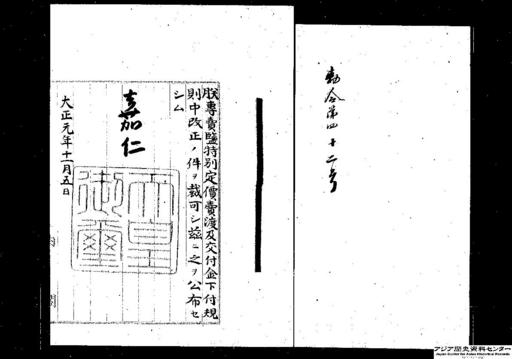 勅令第四十二号
朕專賣鹽特別定價賣渡及交付金下付規
則中改正ノ件ヲ裁可シ茲ニ之ヲ公布セ
シム
嘉仁
天皇御璽
大正元年十一月五日
内閣
アジア歴史資料センター
Japan Center for Asian Historical Records